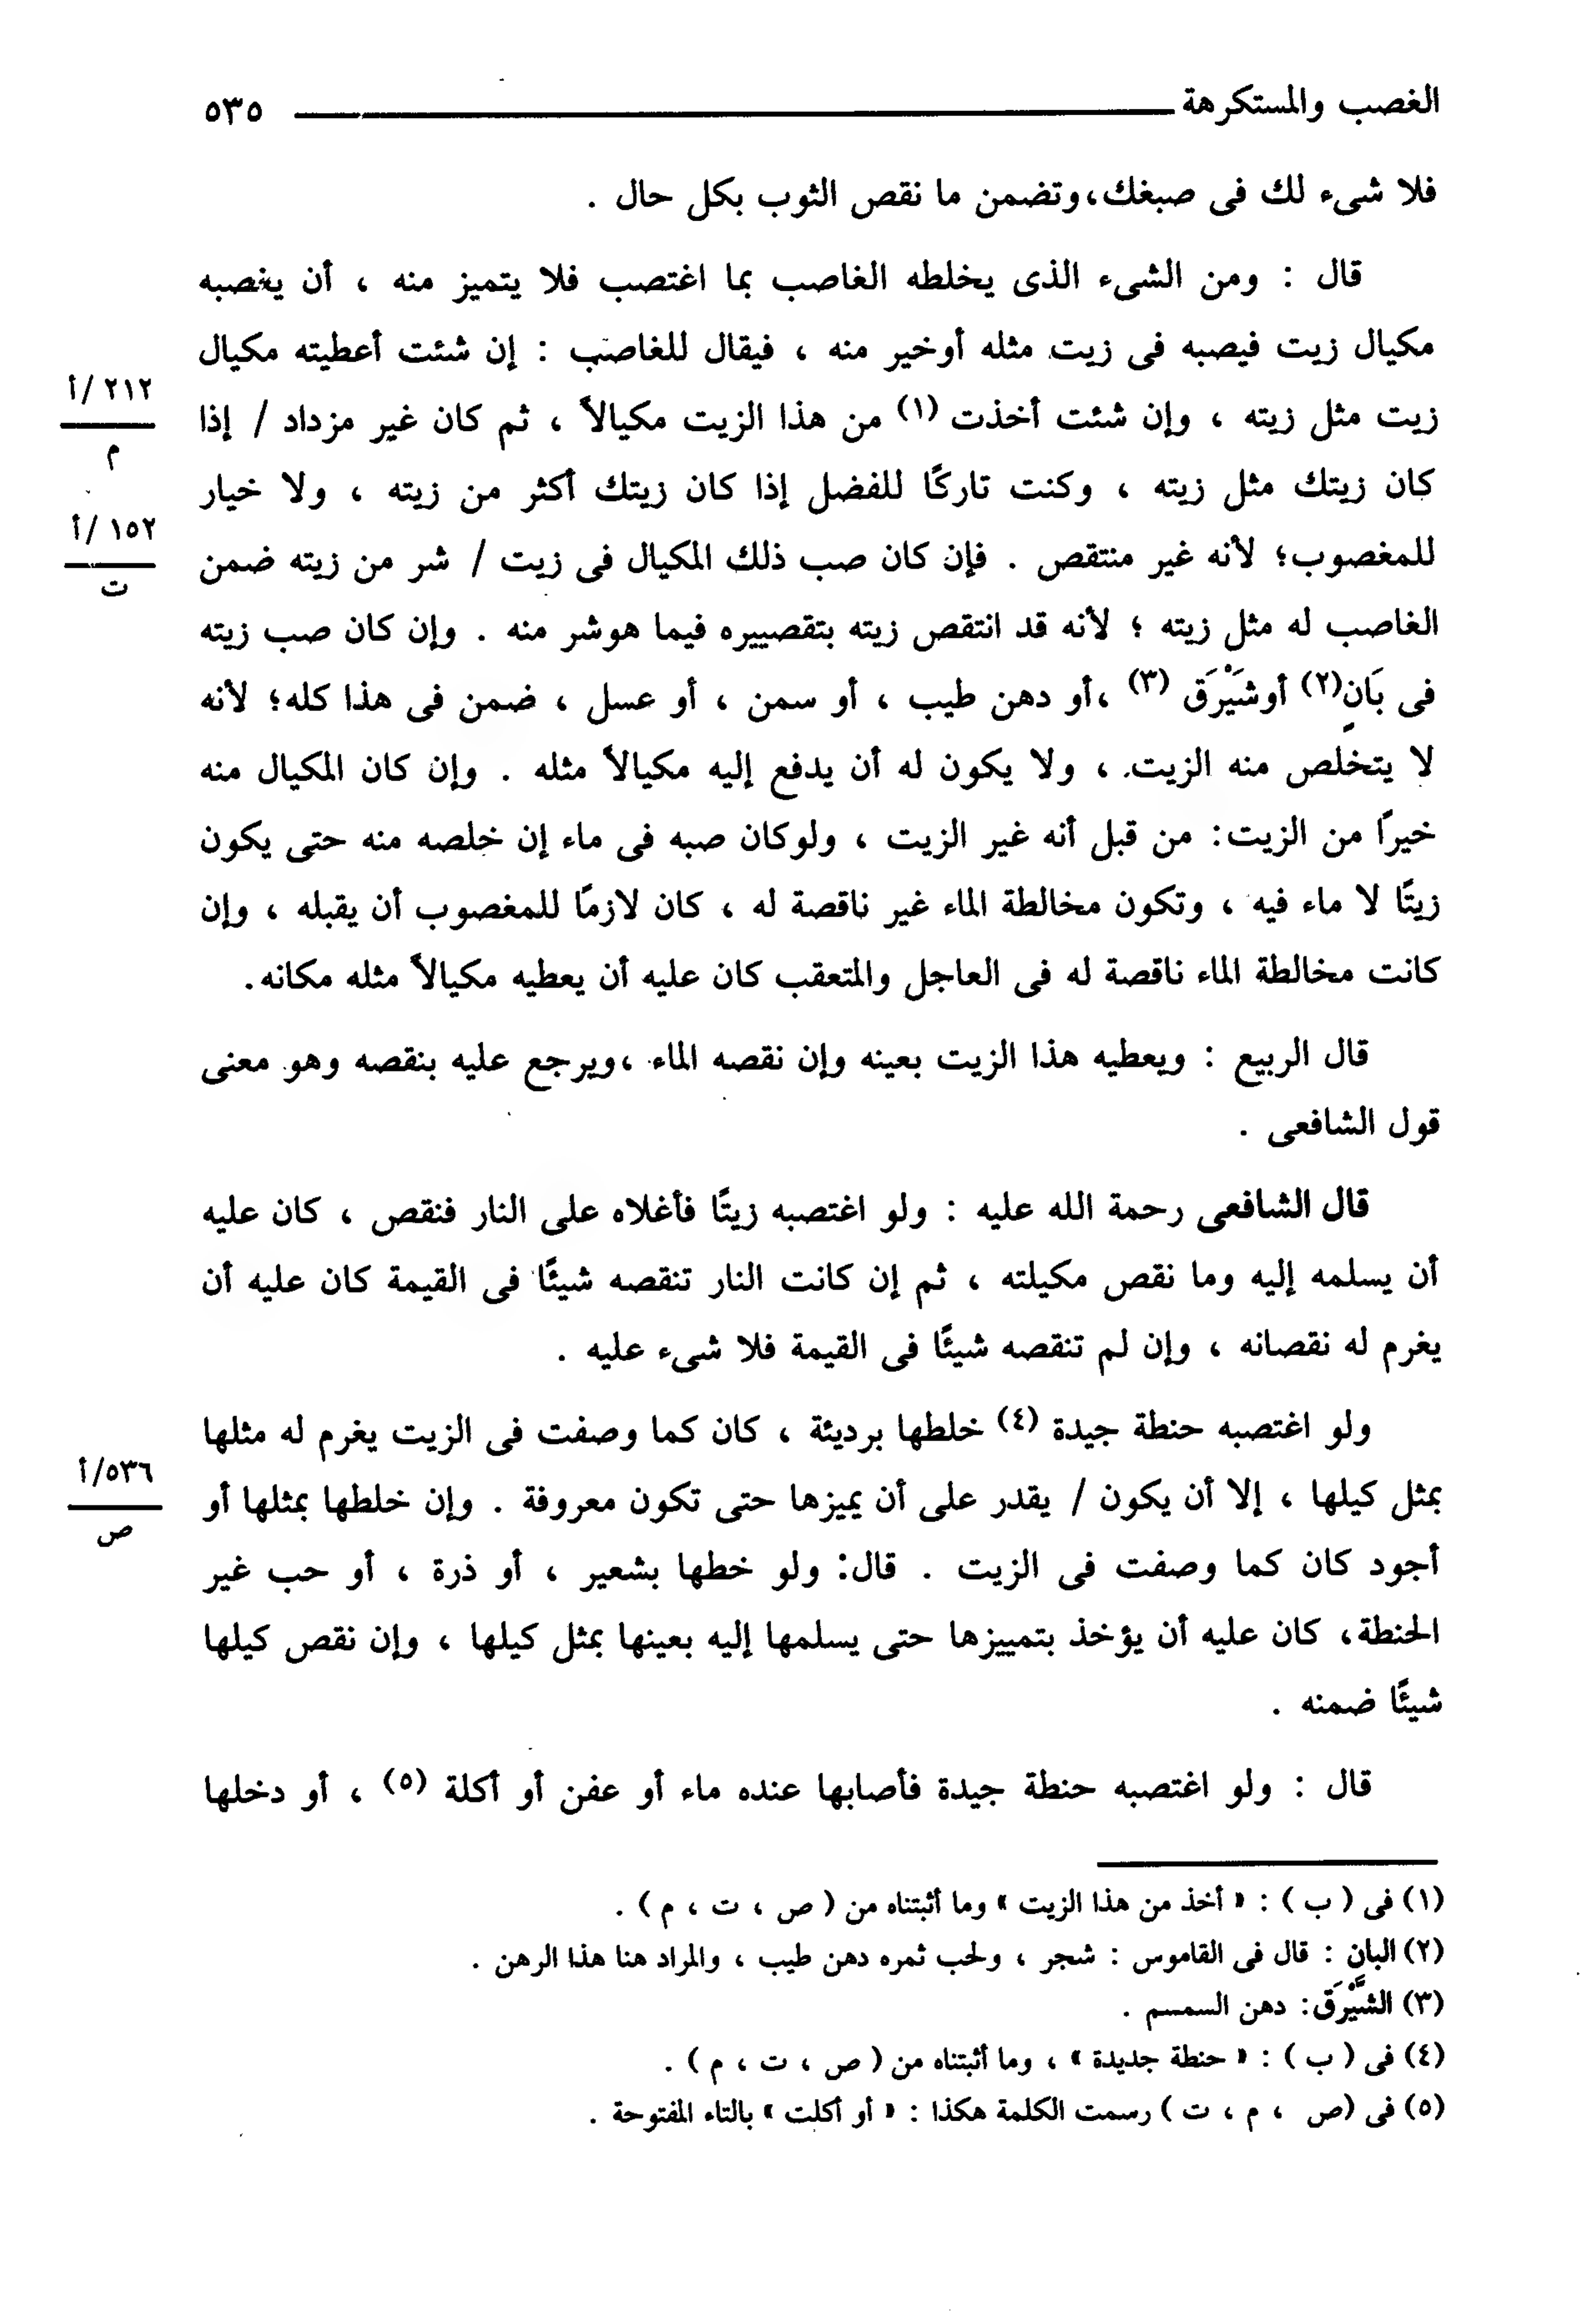 الغصب والمستكرهة ــــــــــ ٥٣٥
فلا شىء لك فى صبغك ، وتضمن ما نقص الثوب بكل حال .
قال : ومن الشىء الذى يخلطه الغاصب بما اغتصب فلا يتميز منه ، أن يغصبه
مكيال زيت فيصبه فى زيت مثله أوخير منه ، فيقال للغاصب : إن شئت أعطيته مكيال
٢١٢ /أ
م
زيت مثل زيته ، وإن شئت أخذت (١) من هذا الزيت مكيالاً ، ثم كان غير مزداد / إذا
كان زيتك مثل زيته ، وكنت تاركًا للفضل إذا كان زيتك أكثر من زيته ، ولا خيار
١٥٢ /أ
ت
للمغصوب؛ لأنه غير منتقص . فإن كان صب ذلك المكيال فى زيت / شر من زيته ضمن
الغاصب له مثل زيته ؛ لأنه قد انتقص زيته بتقصييره فيما هوشر منه . وإن كان صب زيته
فى بَانٍ(٢) أوشَيْرَق (٣) ،أو دهن طيب ، أو سمن ، أو عسل ، ضمن فى هذا كله؛ لأنه
لا يتخلص منه الزيت ، ولا يكون له أن يدفع إليه مكيالاً مثله . وإن كان المكيال منه
خيرًا من الزيت: من قبل أنه غير الزيت ، ولوكان صبه فى ماء إن خلصه منه حتى يكون
زيتًا لا ماء فيه ، وتكون مخالطة الماء غير ناقصة له ، كان لازمًا للمغصوب أن يقبله ، وإن
كانت مخالطة الماء ناقصة له فى العاجل والمتعقب كان عليه أن يعطيه مكيالاً مثله مكانه.
قال الربيع : ويعطيه هذا الزيت بعينه وإن نقصه الماء ،ويرجع عليه بنقصه وهو معنى
قول الشافعى .
قال الشافعى رحمة الله عليه : ولو اغتصبه زيتًا فأغلاه على النار فنقص ، كان عليه
أن يسلمه إليه وما نقص مكيلته ، ثم إن كانت النار تنقصه شيئًا فى القيمة كان عليه أن
يغرم له نقصانه ، وإن لم تنقصه شيئًا فى القيمة فلا شىء عليه .
ولو اغتصبه حنطة جيدة (٤) خلطها برديئة ، كان كما وصفت فى الزيت يغرم له مثلها
٥٣٦/أ
ص
بمثل كيلها ، إلا أن يكون / يقدر على أن يميزها حتى تكون معروفة . وإن خلطها بمثلها أو
أجود كان كما وصفت فى الزيت . قال: ولو خطها بشعير ، أو ذرة ، أو حب غير
الحنطة، كان عليه أن يؤخذ بتمييزها حتى يسلمها إليه بعينها بمثل كيلها ، وإن نقص كيلها
شيئًا ضمنه .
قال : ولو اغتصبه حنطة جيدة فأصابها عنده ماء أو عفن أو أكلة (٥) ، أو دخلها
(١) فى ( ب ) : « أخذ من هذا الزيت » وما أثبتناه من ( ص ، ت ، م ) .
(٢) البان : قال فى القاموس : شجر ، ولحب ثمره دهن طيب ، والمراد هنا هذا الرهن .
(٣) الشَّيْرَق: دهن السمسم .
(٤) فى ( ب ) : « حنطة جديدة » ، وما أثبتناه من ( ص ، ت ، م ) .
(٥) فى (ص ، م ، ت ) رسمت الكلمة هكذا : « أو أكلت » بالتاء المفتوحة .